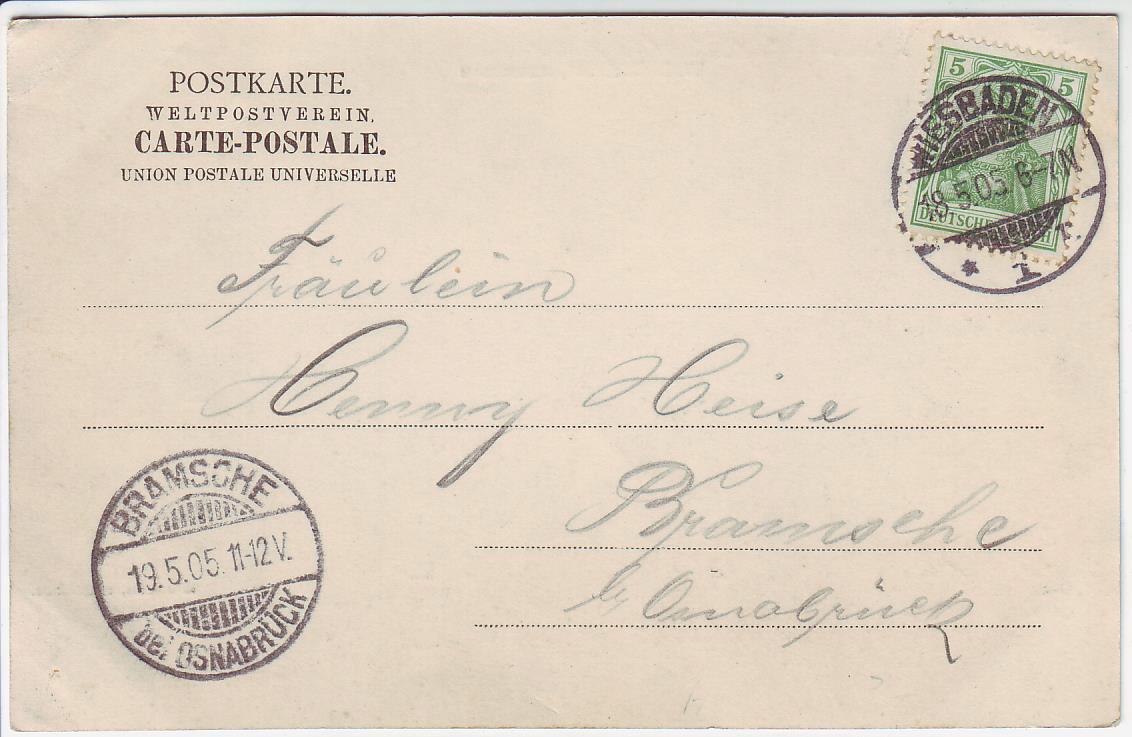 POSTKARTE.
WELTPOSTVEREIN.
CARTE-POSTALE.
UNION POSTALE UNIVERSELLE
5 5
DEUTSCHES REICH
WIESBADEN
18.5.05. 6-7 N
* 1 r.
Fräulein
Henny Heise
Bramsche
b/ Osnabrück
BRAMSCHE
19.5.05. 11-12 V.
bei OSNABRÜCK